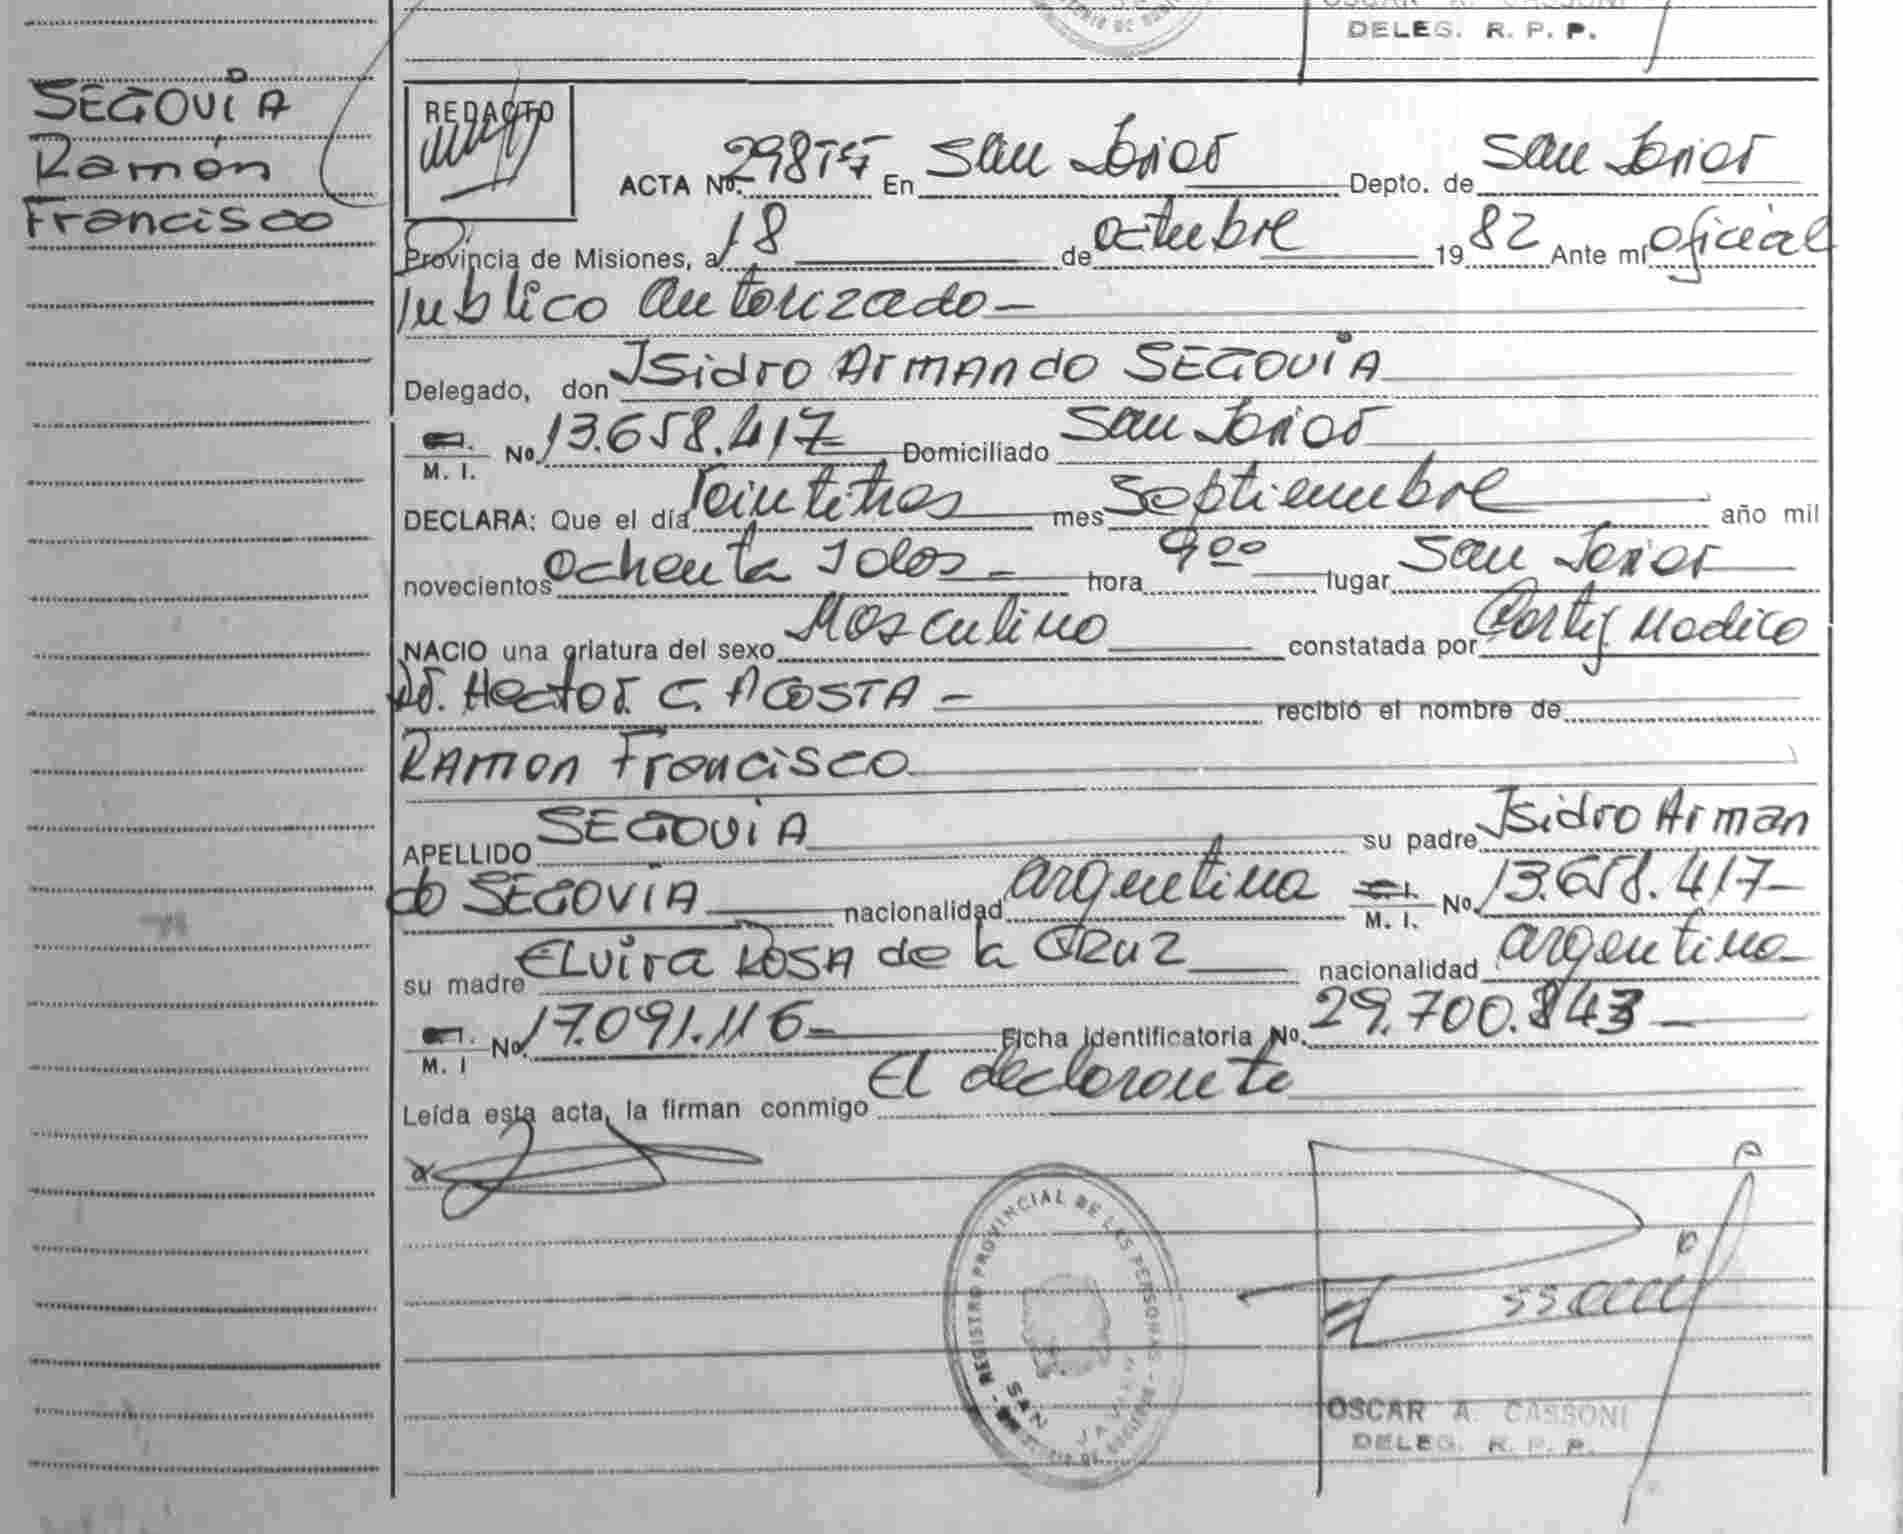 DELEG. R. P. P.
SEGOVIA
Ramón
Francisco
REDACTO
ACTA Nº. 298 En San Javier Depto. de San Javier
Provincia de Misiones, a 18 de octubre 19 82 Ante mí oficial
Publico autorizado -
Delegado, don Isidro Armando SEGOVIA
M. I. Nº. 13.658.417 Domiciliado San Javier
DECLARA: Que el día Veintitres mes Septiembre año mil
novecientos ochenta y dos - hora 9 00 lugar San Javier
NACIO una criatura del sexo Masculino constatada por Certif Medico
Dr. Hector C. ACOSTA - recibió el nombre de
RAMON Francisco
APELLIDO SEGOVIA su padre Isidro Arman
do SEGOVIA nacionalidad argentina M. I. Nº. 13.658.417-
su madre ELvira ROSA de la CRUZ nacionalidad argentina
M. I Nº. 17.091.116- Ficha identificatoria Nº. 29.700.843 -
Leída esta acta, la firman conmigo El declarante
REGISTRO PROVINCIAL DE LAS PERSONAS
SAN JAVIER
OSCAR A. CASSONI
DELEG. R. P. P.